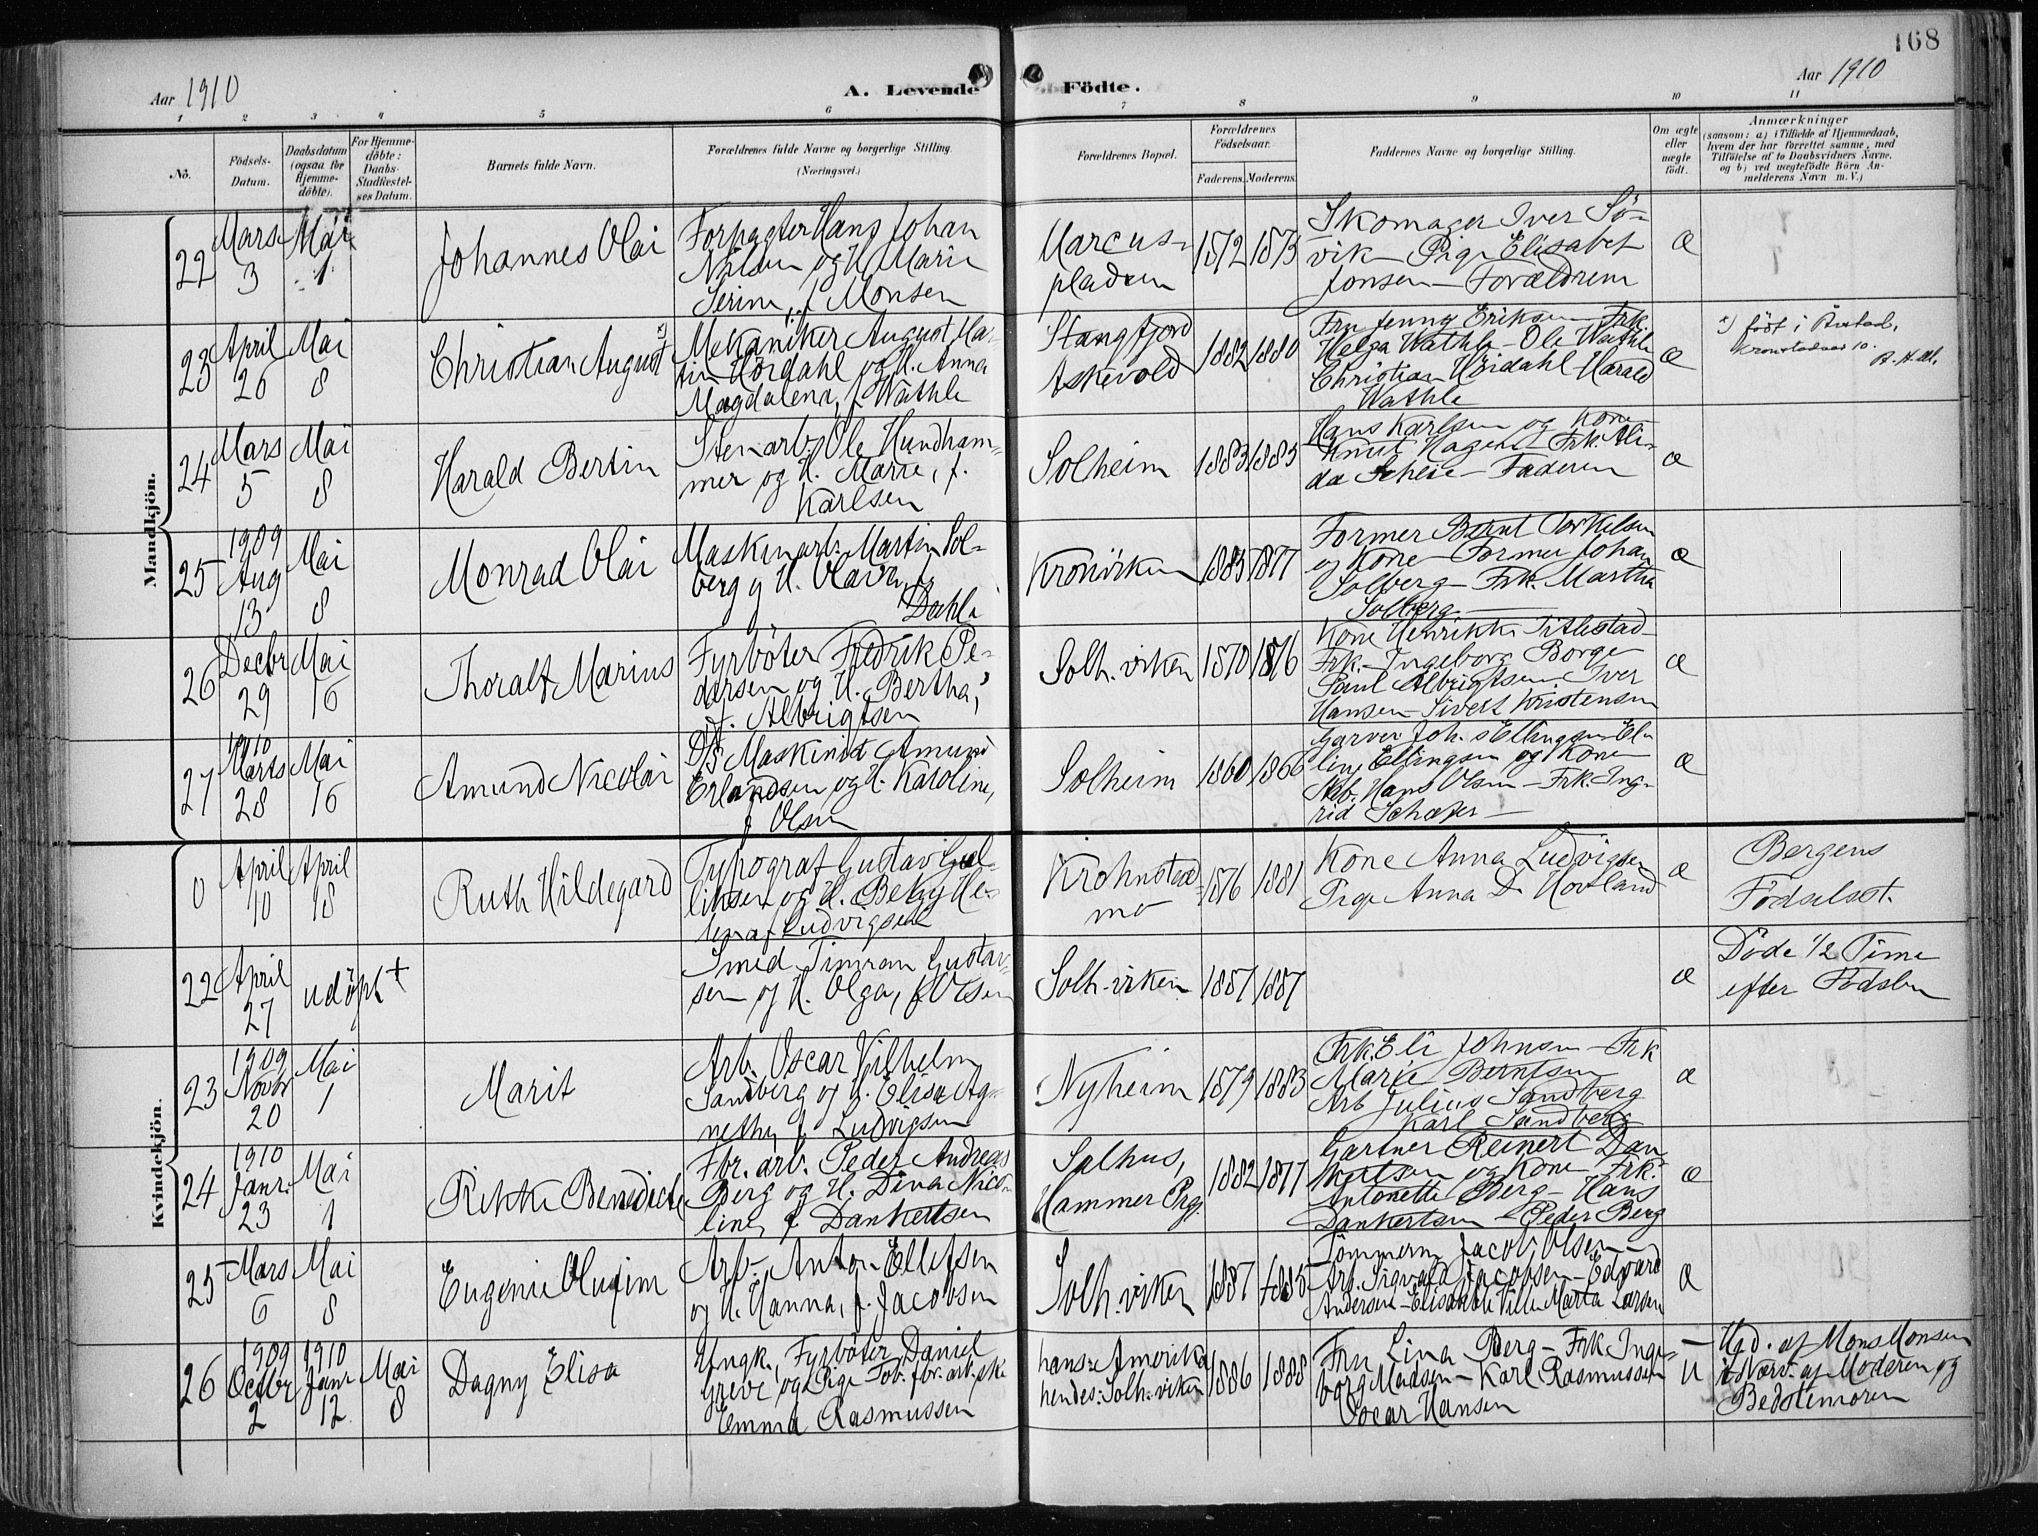 168
Aar 1910
A. Levende Födte.
Aar 1910
1 2 3 4 5 6 7 8 9 10 11
No.
Födsels-
Datum.
Daabsdatum
(ogsaa for
Hjemme-
döbte).
For Hjemme-
döbte:
Daabs-
Stadfæstel-
ses Datum.
Barnets fulde Navn.
Forældrenes fulde Navne og borgerlige Stilling.
(Næringsvei.)
Forældrenes Bopæl.
Forældrenes
Födselsaar.
Faderens. Moderens.
Faddernes Navne og borgerlige Stilling.
Om ægte
eller
uægte
födt.
Anmærkninger
(saasom: a) i Tilfælde af Hjemmedaab,
hvem der har forrettet samme, med
Tilföielse af to Daabsvidners Navne,
og b) ved uægtefödte Börn An-
melderens Navn m. V.)
Mandkjön.
22
Mars
3
Mai
1
Johannes Olai
Forpagter Hans Johan
Nilsen og H. Marie
Serine, f. Monsen
Marcus-
pladsen
1872 1873
Skomager Iver Sö-
vik - Pige Elisabet
Jonsen - Forældrene
æ
23
April
26
Mai
8
Christian August x)
Mekaniker August Mar-
tin Hördahl og H. Anna
Magdalena, f. Wathle
Stangfjord
Askevold
1882 1880
Fru Jenny Eriksen - Frk.
Helga Wathle - Ole Wathle
Christian Hördahl - Harald
Wathle
æ
x) födt i Årstad,
24
Mars
5
Mai
8
Harald Bertin
Stenarb. Ole Hundham-
mer og H. Marie, f.
Karlsen
Solheim
1883 1885
Hans Karlsen og Kone
Knut Hagen - Frk. Ali-
da - Faderen
æ
25
1909
Aug
13
Mai
8
Monrad Olai
Maskinarb. Martin Sol-
berg og H. Olava, f.
Dahle
Kronviken
1885 1877
Former Bernt Torkelsen
og Kone - Former Johan
Solberg - Frk. Martha
Solberg
æ
26
Decbr
29
Mai
16
Thoralf Marius
Fyrböter Fredrik Pe-
dersen og H. Bertha,
f. Albrigtsen
Solh. viken
1870 1876
Kone Henrikke Titlestad
Frk. Ingeborg Borge
Paul Albrigtsen Iver
Hansen - Sivert Kristensen
æ
27
1910
Marts
28
Mai
16
Amund Nicolai
D/S Maskinist Amund
Erlandsen og H. Karoline,
f. Olsen
Solheim
1860 1866
Garver Johs Ellingsen - El-
ling Ellingsen og Kone
Hans Olsen - Frk. Ing-
rid
æ
Kvindekjön.
0
April
10
April
18
Ruth Hildegard
Typograf Gustav Gul-
liksen og H. Betzy He-
lena f. Ludvigsen
Krohnsted
mo
1876 1881
Kone Anna Ludvigsen
Pige Anna D. Hovland
æ
Bergens
Födselsst.
22
April
27
udöpt +
Smed Gustav-
sen og H. Olga, f. Olsen
Solh. viken
1887 1887
æ
Döde 1/2 Time
efter Födslen
23
1909
Novbr
20
Mai
1
Marit
Arb. Oscar Vilhelm
Sandberg og H. Elise Ag-
nethe, f. Ludvigsen
Nyheim
1879 1883
Frk. Eli Johnsen - Frk
Marie Berntsen
Arb Julius Sandberg
Karl Sandberg
æ
24
1910
Janr.
23
Mai
1
Rikke Benedicte
Fbr. arb. Peder Andreas
Berg og H. Dina Nico-
line, f. Dankertsen
Salhus,
Hammer Prgj.
1882 1877
Gartner Reinert Dan-
kertsen og Kone - Frk.
Antonette Berg - Hans
Dankertsen - Peder Berg
æ
25
Mars
6
Mai
8
Eugenie
Arb. Anton Ellefsen
og H. Hanna, f. Jacobsen
Solh. viken
1887 1885
Tömmerm. Jacob Olsen -
Arb. Sigvald Jacobsen - Edvard
Andersen - Elisabeth Marta Larsen
æ
26
1909
Octbr
2
1910
Janr
12
Mai
8
Dagny Elisa
Ungk., Fyrböter Daniel
Greve og Pige Tob. fbr. arb.ske
Emma Rasmussen
hans: Amerika
hendes: Solh. viken
1886 1888
Fru Lina Berg - Frk. Inge-
borg Madsen - Karl Rasmussen
Oscar Hansen
u
Ugd. af Mons Monsen
i Nærv. af Moderen og
Bedstemoren